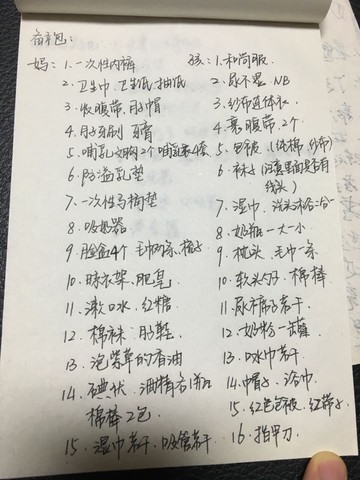 待产包:
妈: 1.一次性内裤
2.卫生巾、卫生纸、抽纸
3、收腹带、月子帽
4.月子牙刷 牙膏
5、哺乳文胸2个 哺乳衣
6.防溢乳垫
7.一次性马桶垫
8.吸奶器
9.脸盆4个 毛巾 梳子
10.晾衣架、肥皂
11.漱口水、红糖
12.棉袜 月子鞋
13.泡紫草的香油
14.碘伏、酒精
棉棒2包
15.湿巾若干、吸管若干
孩:1.和尚服
2、尿不湿 NB
3.纱布连体衣
4.裹腹带、2个
5、包被、(纯棉、纱布)
6.袜子(注意里面是否有
线头)
7、湿巾、洗头沐浴二合一
8、奶瓶一大一小
9.枕头、毛巾一条
10.软头勺子、棉棒
11.尿布裤子若干、
12、奶粉一罐
13.口水巾若干
14.帽子、浴巾
15.红色包被、红带子
16.指甲刀